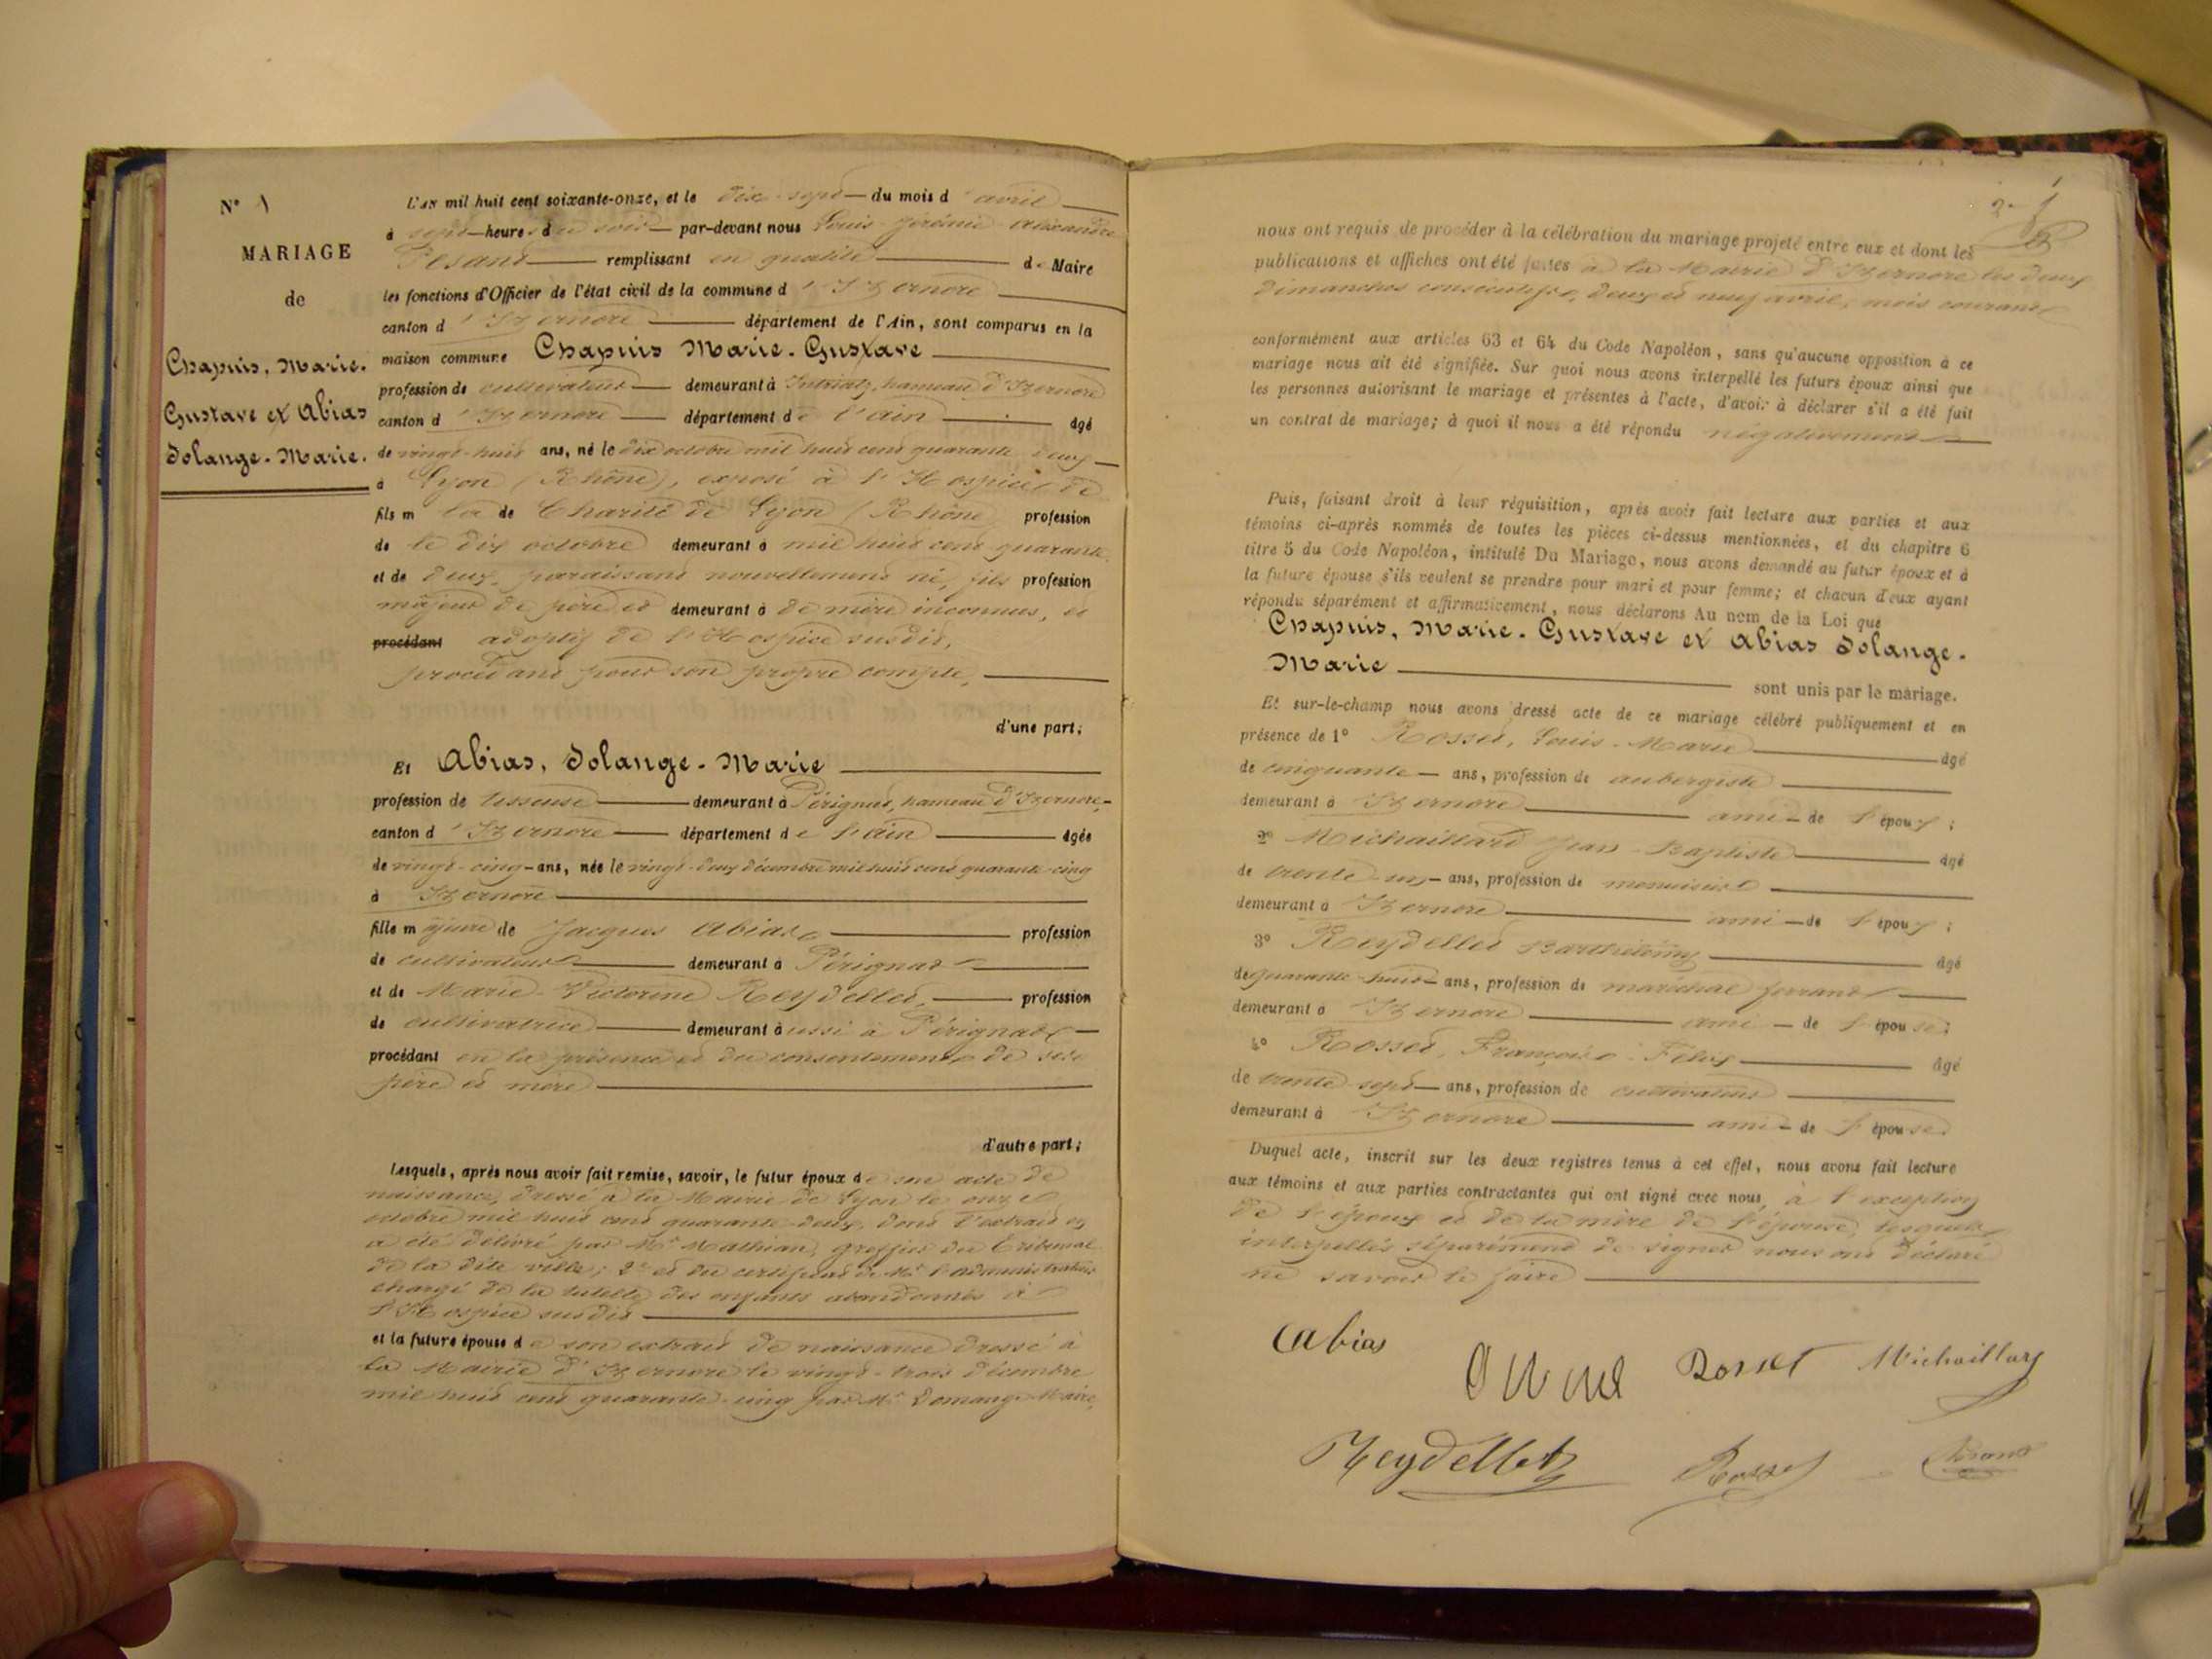 N° 1
MARIAGE
de
Chapuis, Marie-
Gustave et Abias
Solange-Marie.
L'an mil huit cent soixante-onze, et le dix-sept du mois d'avril
à sept heures du soir par-devant nous Louis Jérémie Alexandre
Pesant remplissant en qualité de Maire
les fonctions d'Officier de l'état civil de la commune d'Izernore
canton d'Izernore département de l'Ain, sont comparus en la
maison commune Chapuis Marie-Gustave
profession de cultivateur demeurant à Intriatz, hameau d'Izernore
canton d'Izernore département de l'ain âgé
de vingt-huit ans, né le dix octobre mil huit cent quarante deux
à Lyon (Rhône), exposé à l'Hospice de
fils m la de Charité de Lyon (Rhône) profession
de le dix octobre demeurant à mil huit cent quarante
et de deux, paraissant nouvellement né, fils profession
majeur de père et demeurant à de mère inconnus, et
procédant adoptif de l'Hospice susdit,
procédant pour son propre compte,
d'une part;
Et Abias, Solange-Marie
profession de tisseuse demeurant à Pérignat, hameau d'Izernore,
canton d'Izernore département de l'ain âgée
de vingt-cinq ans, née le vingt-deux décembre mil huit cent quarante-cinq
à Izernore
fille majeure de Jacques Abias profession
de cultivateur demeurant à Pérignat
et de Marie-Victorine Reydellet, profession
de cultivatrice demeurant aussi à Pérignat
procédant en la présence et du consentement de ses
père et mère
d'autre part;
Lesquels, après nous avoir fait remise, savoir, le futur époux de son acte de
naissance, dressé à la Mairie de Lyon le onze
octobre mil huit cent quarante-deux, dont l'extrait en
a été délivré par Mr Mathian, greffier du Tribunal
de la dite ville; 2° et du certificat de Mr l'administrateur
chargé de la tutelle des enfants abandonnés à
l'Hospice susdit
et la future épouse de son extrait de naissance dressé à
la Mairie d'Izernore le vingt-trois décembre
mil huit cent quarante-cinq par Mr Domange Maire,
nous ont requis de procéder à la célébration du mariage projeté entre eux et dont les
publications et affiches ont été faites à la Mairie d'Izernore les deux
dimanches consécutifs, deux et neuf avril, mois courant
conformément aux articles 63 et 64 du Code Napoléon, sans qu'aucune opposition à ce
mariage nous ait été signifiée. Sur quoi nous avons interpellé les futurs époux ainsi que
les personnes autorisant le mariage et présentes à l'acte, d'avoir à déclarer s'il a été fait
un contrat de mariage; à quoi il nous a été répondu négativement
Puis, faisant droit à leur réquisition, après avoir fait lecture aux parties et aux
témoins ci-après nommés de toutes les pièces ci-dessus mentionnées, et du chapitre 6
titre 5 du Code Napoléon, intitulé Du Mariage, nous avons demandé au futur époux et à
la future épouse s'ils veulent se prendre pour mari et pour femme; et chacun d'eux ayant
répondu séparément et affirmativement, nous déclarons Au nom de la Loi que
Chapuis, Marie-Gustave et Abias Solange-
Marie
sont unis par le mariage.
Et sur-le-champ nous avons dressé acte de ce mariage célébré publiquement et en
présence de 1° Rosset, Louis-Marie âgé
de cinquante ans, profession de aubergiste
demeurant à Izernore ami de l'époux;
2° Michaillard Jean-Baptiste âgé
de trente-un ans, profession de menuisier
demeurant à Izernore ami de l'époux;
3° Reydellet Barthélémy âgé
de quarante-huit ans, profession de maréchal ferrant
demeurant à Izernore ami de l'épouse;
4° Rosset, François-Félix âgé
de trente-sept ans, profession de cultivateur
demeurant à Izernore ami de l'épouse.
Duquel acte, inscrit sur les deux registres tenus à cet effet, nous avons fait lecture
aux témoins et aux parties contractantes qui ont signé avec nous, à l'exception
de l'époux et de la mère de l'épouse, lesquels
interpellés séparément de signer nous ont déclaré
ne savoir le faire
Abias
Rosset
Michaillard
Reydellet
Rosset
Pesant